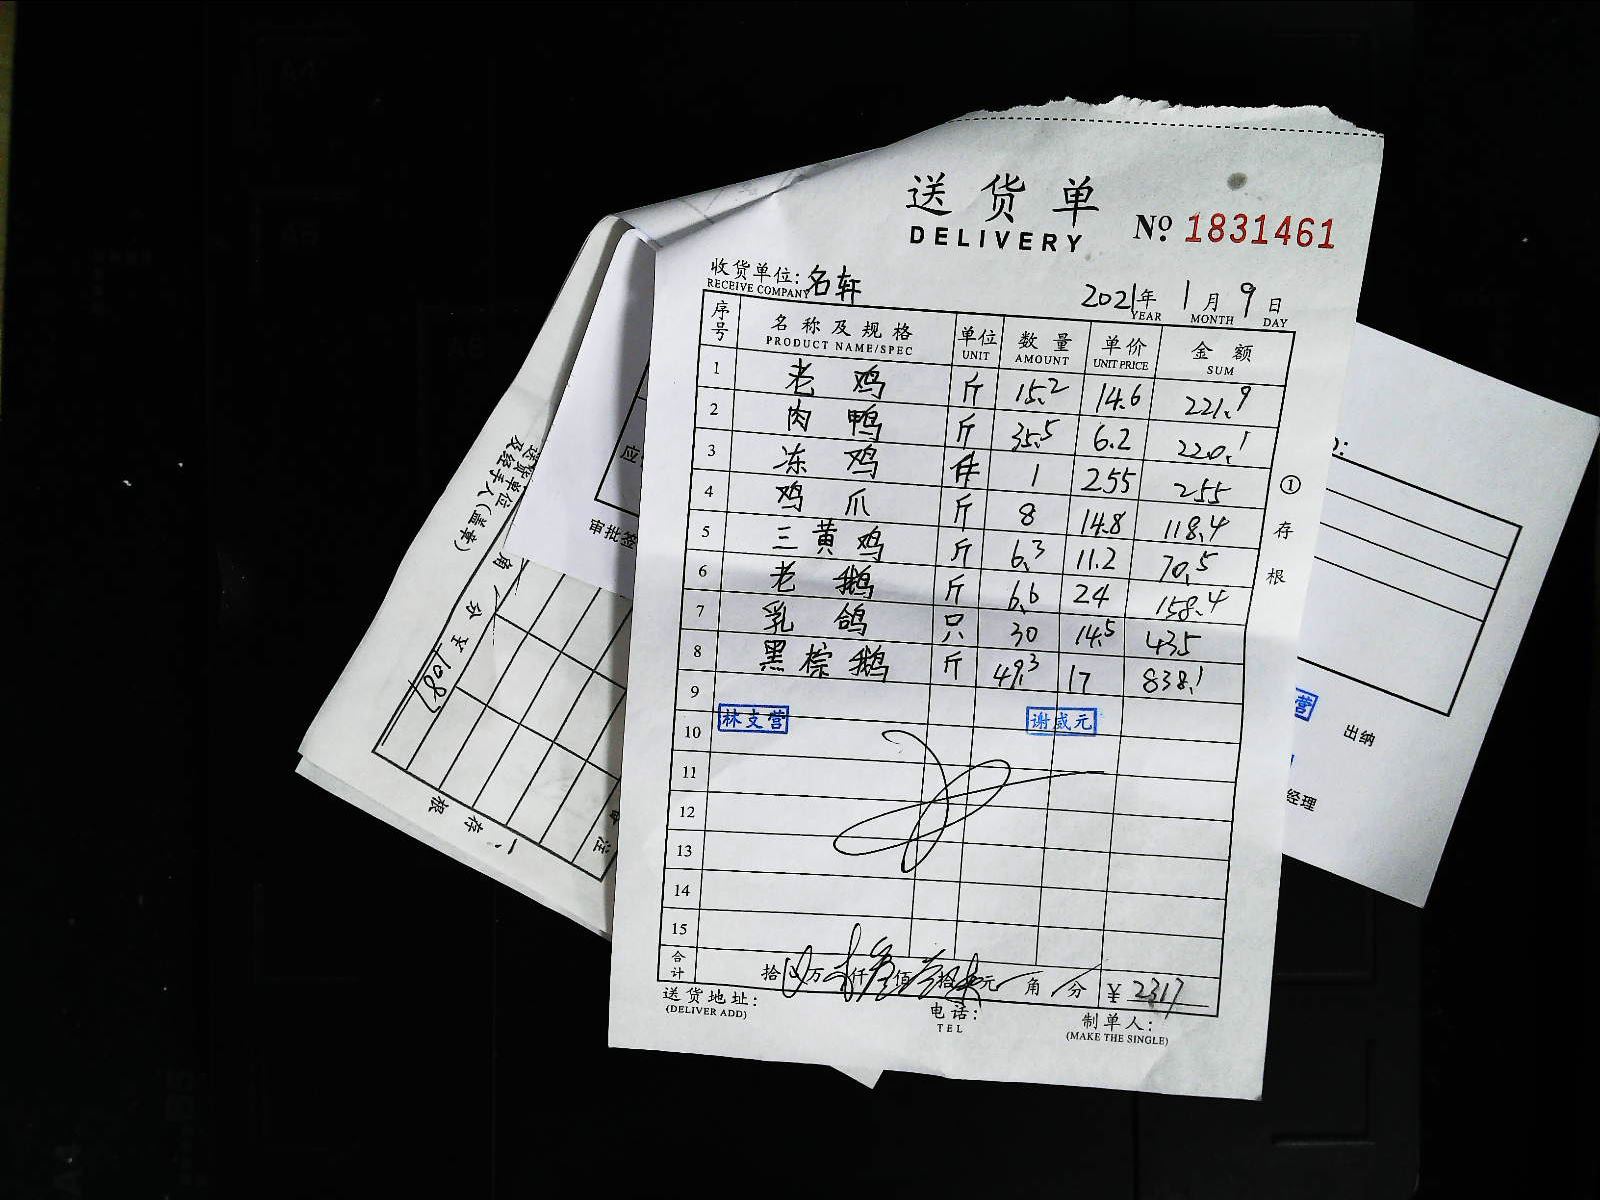 送货单
DELIVERY
No. 1831461
收货单位: 名轩
RECEIVE COMPANY
2021年 1月 9日
YEAR MONTH DAY
序号 名称及规格 单位 数量 单价 金额
PRODUCT NAME/SPEC UNIT AMOUNT UNIT PRICE SUM
1 老鸡 斤 15.2 14.6 221.9
2 肉鸭 斤 35.5 6.2 220.1
3 冻鸡 件 1 255 255
4 鸡爪 斤 8 14.8 118.4
5 三黄鸡 斤 6.3 11.2 70.5
6 老鹅 斤 6.6 24 158.4
7 乳鸽 只 30 14.5 435
8 黑棕鹅 斤 49.3 17 838.1
9
林支营 谢或元
10
11
12
13
14
15
合计 拾 万 仟 佰 拾 元 角 分 ¥ 2317
送货地址: 电话: 制单人:
(DELIVER ADD) TEL (MAKE THE SINGLE)
①存根
应
审批签
送货单位
及经手人(盖章)
角 分
1087
存根
出纳
经理
营